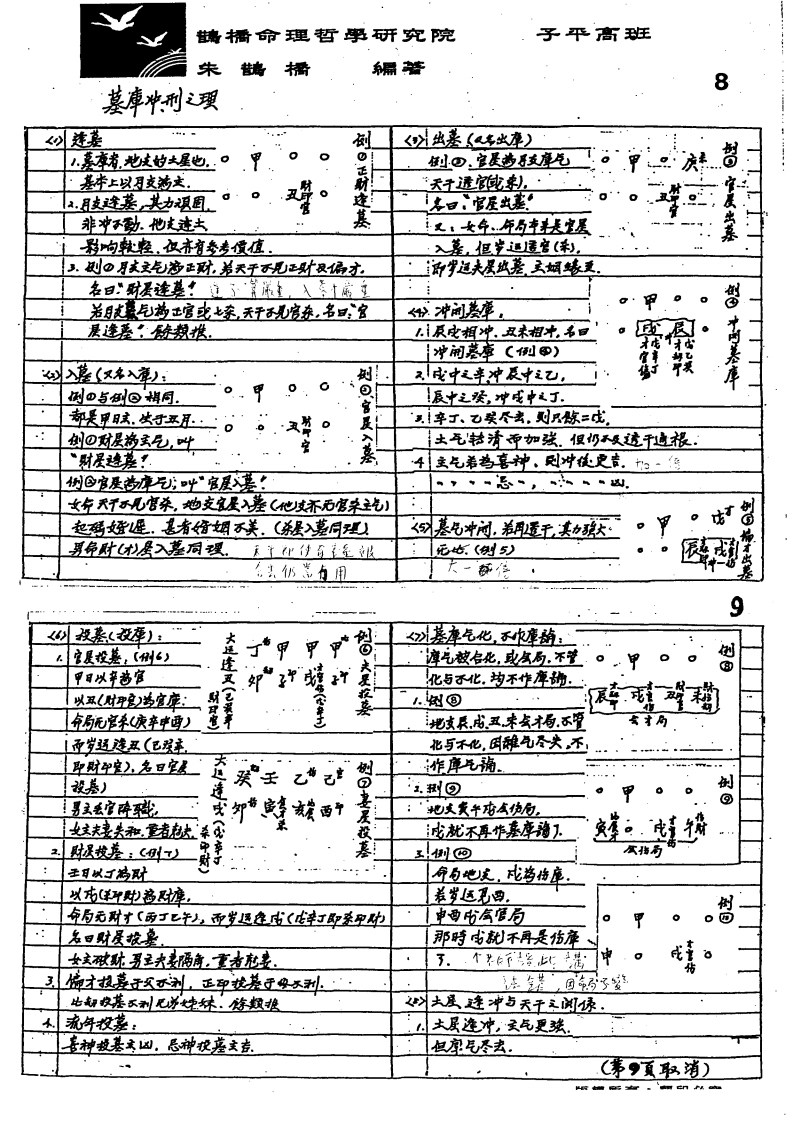 鵲橋命理哲學研究院 子平高班
朱鵲橋 編著
8
墓庫冲刑之理
<1> 逢墓
1. 墓庫者, 地支的土星也.
基本上以月支為主.
2. 月支逢墓, 其力頑固,
非冲不動. 他支逢土
影响較輕. 但亦有参考價值.
3. 例①月支主气為正財, 若天干不見正財及偏才,
名曰:"財星逢墓".
若月支墓气為正官或七杀, 天干不見官杀, 名曰:"官
星逢墓". 餘類推.
例①正財逢墓
甲
丑 財印官
<2> 入墓(又名入庫):
例①与例②相同.
都是甲日主. 生于丑月.
例①財星為主气, 叫
"財星逢墓".
例②官星為庫气; 叫"官星入墓".
女命天干不見官杀, 地支官星入墓(他支亦无官杀主气)
起碼婚遲. 甚者婚姻不美. (杀星入墓同理).
男命財(才)星入墓同理.
例②官星入墓
甲
丑 財印官
<3> 出墓(又名出庫)
例③. 官星為月支庫气
天干透官(或杀).
名曰:"官星出墓"
又: 女命. 命局本来是官星
入墓, 但岁运透官(杀).
即岁运夫星出墓, 主姻缘至.
例③官星出墓
甲 庚杀
丑 財印官
<4> 冲開墓庫.
1. 辰戌相冲. 丑未相冲, 名曰
冲開墓庫 (例④)
2. 戌中之辛, 冲辰中之乙,
辰中之癸, 冲戌中之丁.
3. 辛丁、乙癸尽去, 則只餘二戊,
土气转清而加強. 但仍不及透干通根.
4. 主气若為喜神、則冲後更吉.
〃〃〃〃忌〃, 〃〃〃〃凶.
例④冲開墓庫
甲
戌 冲 辰
<5> 墓气冲開, 若用透干, 其力強大
无比. (例5)
例⑤偏才出墓
甲 戊才
辰 冲 戌
9
<6> 投墓(投庫):
1. 官星投墓, (例6)
甲日以辛為官
以丑(財印官)為官庫.
命局无官杀(庚辛申酉)
而岁运逢丑(己癸辛,
即財印官), 名曰官星
投墓)
男主丢官降職,
女主夫妻失和, 重者尅夫.
例⑥夫星投墓
丁 甲 甲 甲
卯 子 戌 子
大运逢丑(己癸辛 財印官)
2. 財星投墓: (例7)
壬日以丁為財
以戌(杀印財)為財庫.
命局无財才(丙丁巳午), 而岁运逢戌(戊辛丁即杀印財)
名曰財星投墓.
女主破財, 男主夫妻隔角, 重者尅妻.
例⑦妻星投墓
癸 壬 乙 己
卯 寅 亥 酉
大运逢戌(戊辛丁 杀印財)
3. 偏才投墓于父不利, 正印投墓于母不利.
比刼投墓不利兄弟姊妹. 餘類推
4. 流年投墓:
喜神投墓主凶. 忌神投墓主吉.
<7> 墓庫气化, 不作庫論:
庫气被合化, 或会局, 不管
化与不化, 均不作庫論.
1. 例⑧
地支辰、戌、丑、未会才局, 不管
化与不化, 因雜气尽失, 不
作庫气論.
例⑧
甲
辰 戌 丑 未
会才局
2. 例⑨
地支寅午戌会伤局.
戌就不再作墓庫論了.
例⑨
甲
寅 戌 午
会伤局
3. 例⑩
命局地支, 戌為伤庫.
若岁运見酉.
申酉戌会官局
那時戌就不再是伤庫
了.
例⑩
甲
申 戌
<8> 土星逢冲与天干之関係.
1. 土星逢冲, 主气更強.
但庫气尽去.
(第9頁取消)